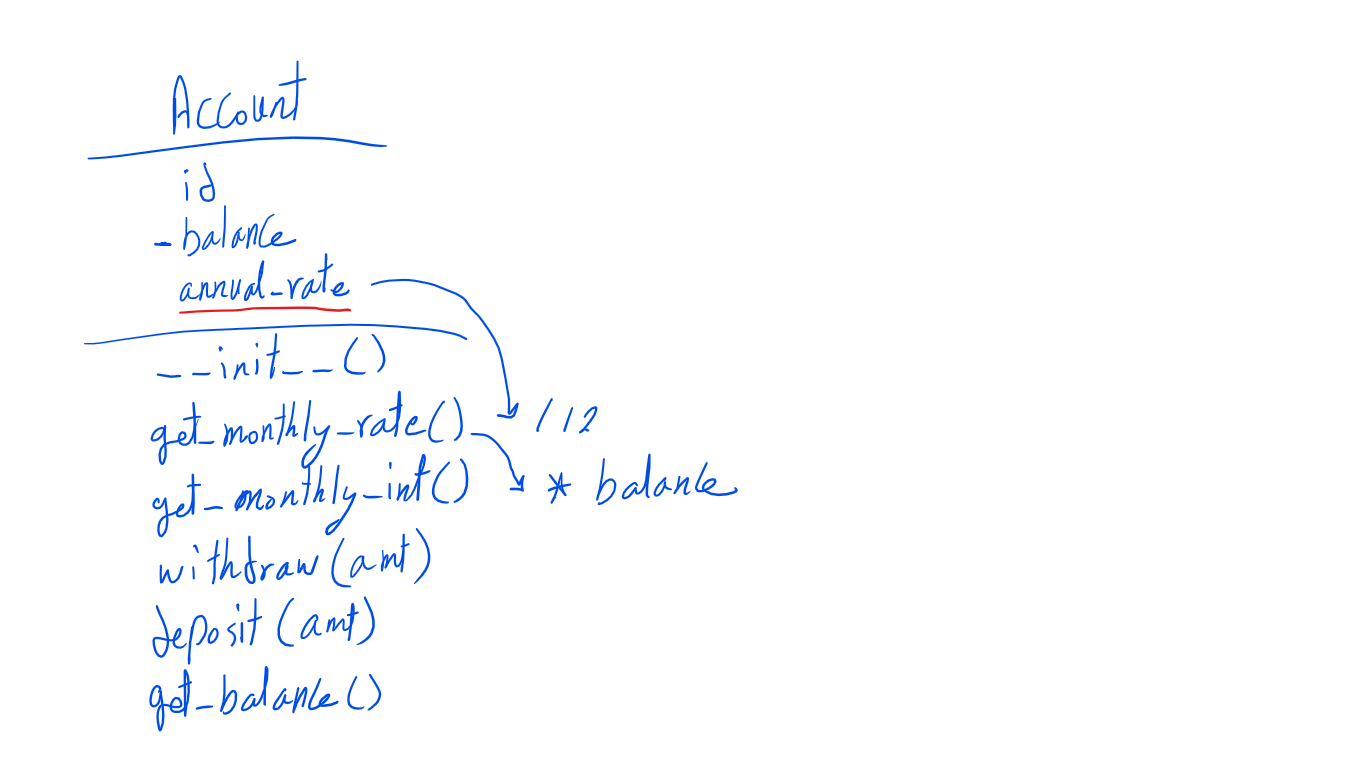 Account
id
-balance
annual_rate
__init__()
get_monthly_rate() /12
get_monthly_int() * balance
withdraw(amt)
deposit(amt)
get_balance()